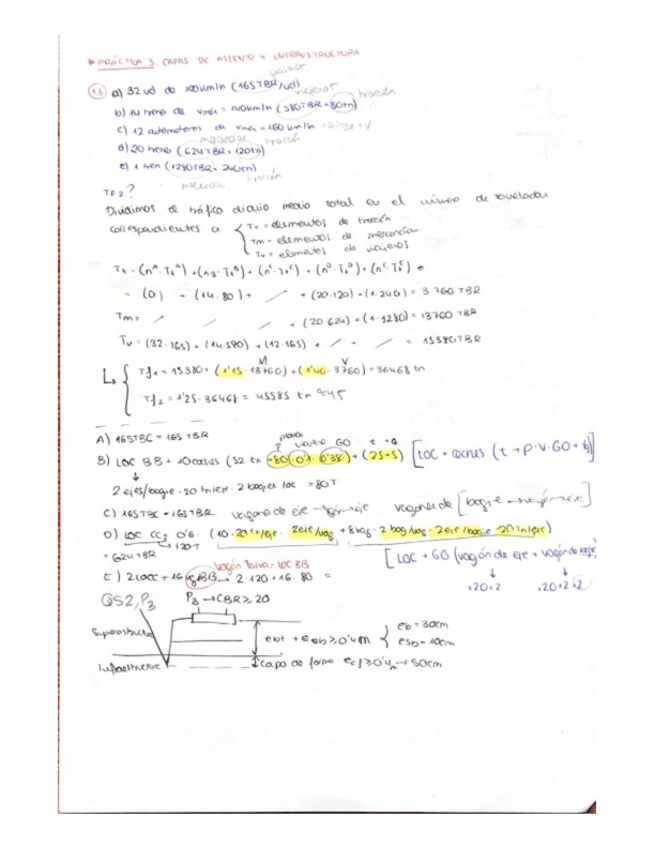 ▸ PRÁCTICA 3. CAPAS DE ASIENTO Y INFRAESTRUCTURA
viajeros
13 a) 32 ud de 100 km/h (165TBR/ud)
viajeros tracción
b) 14 trenes de vmáx = 140 km/h (380TBR + 80tn)
c) 12 automotores de vmáx = 160 km/h
mercancías tracción
d) 20 trenes (624TBR + 120tn)
e) 1 tren (1280TBR + 240tn)
mercancía tracción
TF2?
Dividimos el tráfico diario medio total en el número de toneladas
correspondientes a { Tt = elementos de tracción
Tm = elementos de mercancías
Tv = elementos de viajeros
Tt = (nᴬ·Ttᴬ) + (nB·TtB) + (nᶜ·Ttᶜ) + (nᴰ·Ttᴰ) + (nᴱ·Ttᴱ) =
= (0) + (14·80) + / + (20·120) + (1·240) = 3760 TBR
Tm = / / / + (20·624) + (1·1280) = 13760 TBR
Tv = (32·165) + (14·380) + (12·165) + / + / = 15380TBR
M V
Tf1 = 15380 + (1'15·13760) + (1'40·3760) = 36468 tn
Tf2 = 1'25·36468 = 45585 tn ≈ 45
A) 165TBC = 165 TBR
plazas viajero GO t + q
B) LOC BB + 10 coches (52 tn + 80·0'7·0'38) + (25+5) [LOC + coches (t + P·V·GO + t/q)]
↓
2 ejes/bogie · 20 tn/eje · 2 bogies loc = 80T
C) 165TBC = 165TBR vagones de eje vagones de [bogie → vagón → eje]
D) LOC CC; 0'6· (10·20 tn/eje · 2eje/vag + 8vag · 2 bog/vag · 2eje/bogie 20 Tn/eje)
↳ 120T
= 624TBR [LOC + GO (vagón de eje + vagón de bogie)
Vagón Tolva = LOC BB ↓ ↓
E) 2 locCC + 16 vg BB → 2·120 + 16·80 = ×20×2 ×20×2×2
QS2, P3 P3 → CBR ≥ 20
Superestructura
ebt + esb ≥ 0'4m { eb = 30cm
esb = 10cm
Infraestructura capa de forma ecf ≥ 0'4m → 50cm